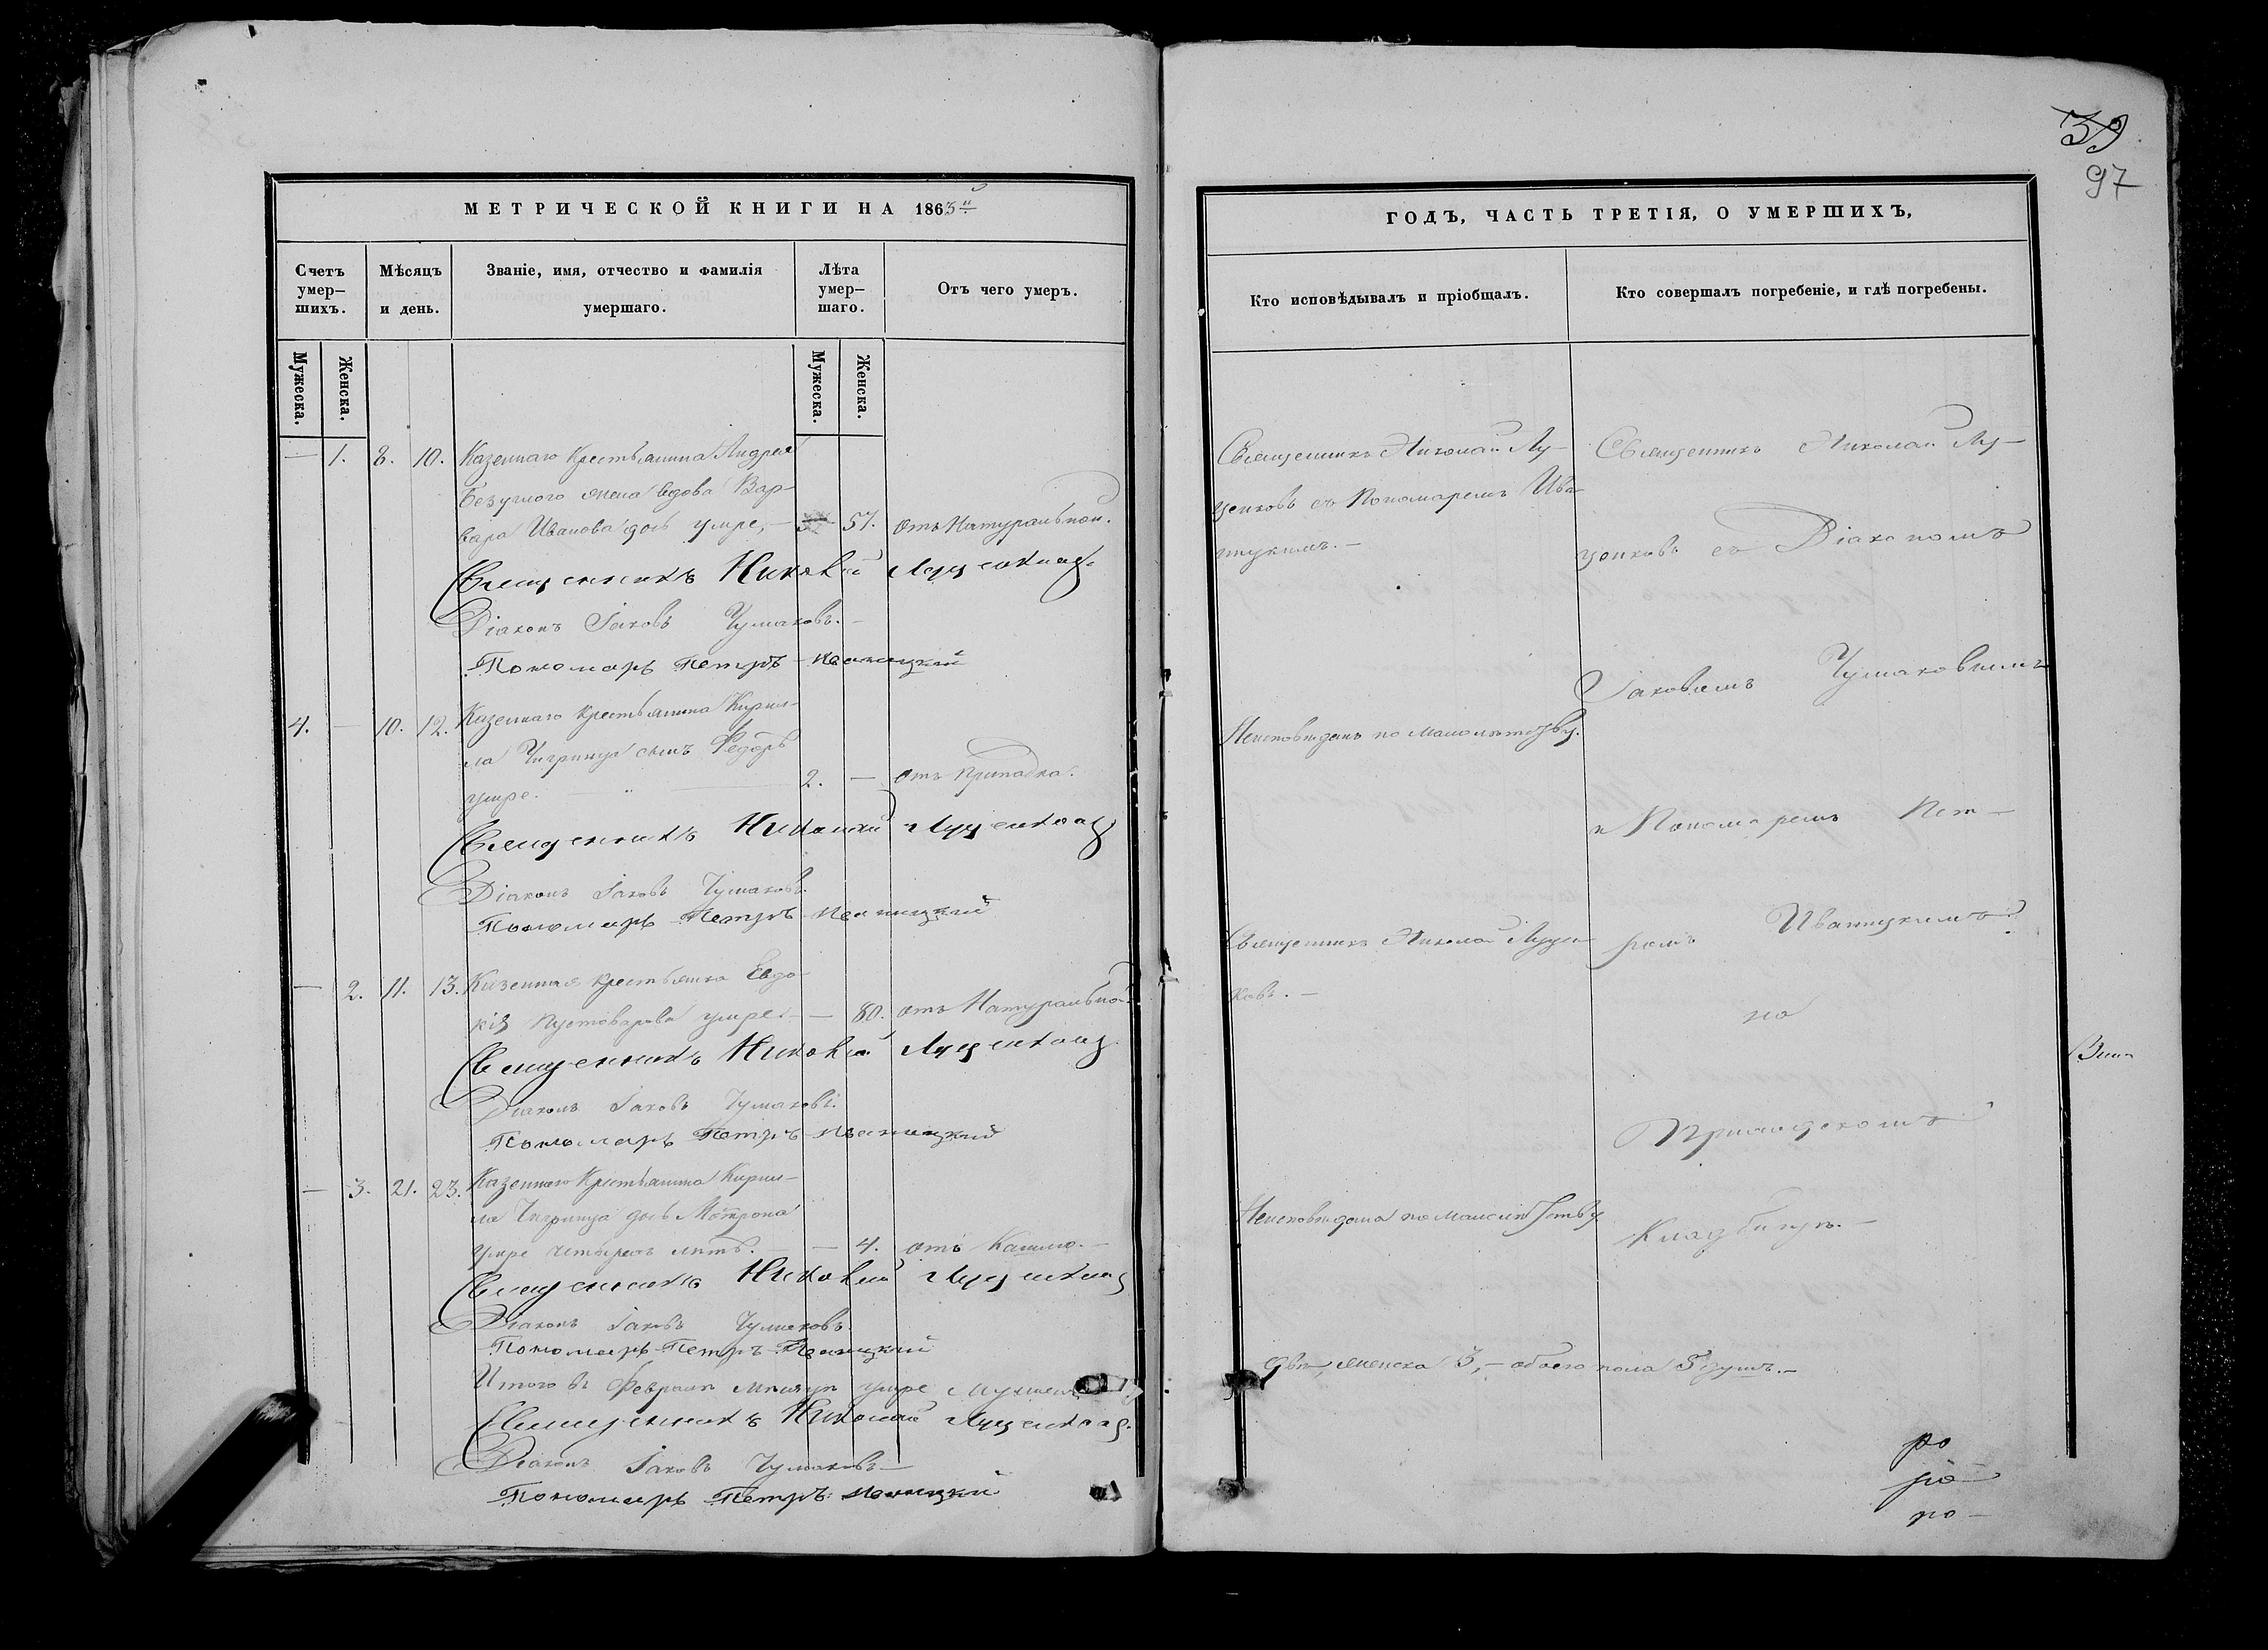 39
97
МЕТРИЧЕСКОЙ КНИГИ НА 1863й
Счетъ умер-шихъ.
Мѣсяцъ и день.
Званіе, имя, отчество и фамилія умершаго.
Лѣта умер-шаго.
Отъ чего умеръ.
Мужеска.
Женска.
Мужеска.
Женска.
— 1. 8. 10. Казеннаго крестьянина Андрея
Безуглого жена вдова Вар-
вара Иванова дочь умре, — 57. отъ Натуральной.
Священникъ Николай Луценковъ
Діаконъ Іаковъ Чумаковъ.
Пономарь Петръ Иваницкій
4. — 10. 12. Казеннаго крестьянина Кирил-
ла Чигринца сынъ Федоръ
умре. 2. — отъ припадка.
Священникъ Николай Луценковъ
Діаконъ Іаковъ Чумаковъ.
Пономарь Петръ Иваницкій
— 2. 11. 13. Казенная крестьянка Евдо-
кія Пустоварова умре. — 80. отъ Натуральной.
Священникъ Николай Луценковъ
Діаконъ Іаковъ Чумаковъ.
Пономарь Петръ Иваницкій
— 3. 21. 23. Казеннаго Крестьянина Кирил-
ла Чигринца дочь Мотрона
умре четырехъ лѣтъ. — 4. отъ Кашлю. —
Священникъ Николай Луценковъ
Діаконъ Іаковъ Чумаковъ.
Пономарь Петръ Иваницкій
Итого въ Февралѣ мѣсяцѣ умре мужеска
Священникъ Николай Луценковъ
Діаконъ Іаковъ Чумаковъ
Пономарь Петръ Иваницкій
ГОДЪ, ЧАСТЬ ТРЕТІЯ, О УМЕРШИХЪ,
Кто исповѣдывалъ и пріобщалъ.
Кто совершалъ погребеніе, и гдѣ погребены.
Священникъ Николай Лу-
ценковъ съ Пономаремъ Ива
ницкимъ. —
Неисповѣданъ по малолѣтству.
Священникъ Николай Луцен
ковъ. —
Неисповѣдана по малолѣтству
Священникъ Николай Лу-
ценковъ съ Діакономъ
Іаковомъ Чумаковымъ
и Пономаремъ Пет-
ромъ Иваницкимъ
на
Приходскомъ
Кладбищѣ. —
два, женска 3, — обоего пола 5 душъ. —
ро
ро
ро —